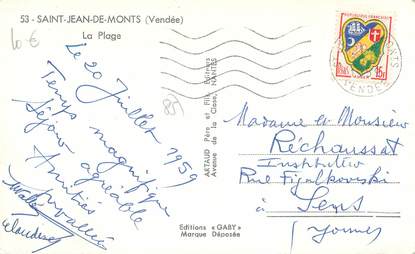 53 - SAINT-JEAN-DE-MONTS (Vendée)
La Plage
10 €
85
Le 20 Juillet 1959
Temps magnifique
Séjour agréable
Amitiés
Claudine
ARTAUD Père et Fils Editeurs
Avenue de la Close, NANTES
Editions « GABY »
Marque Déposée
15F
VENDEE
Madame et Monsieur
Réchaussat
Instituteur
Rue
à Sens
(Yonne)